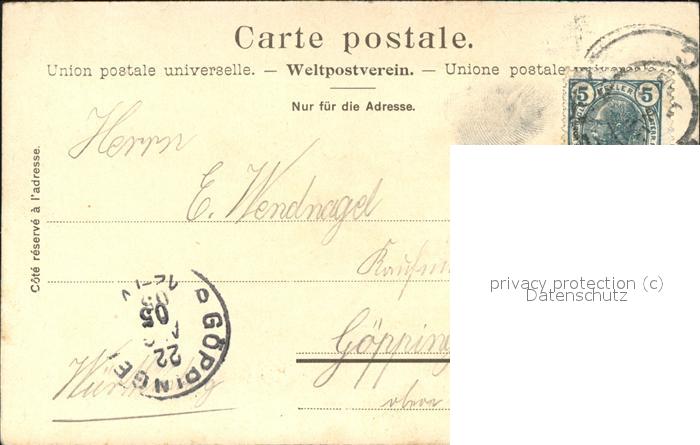 Carte postale.
Union postale universelle. — Weltpostverein. — Unione postale universale.
Nur für die Adresse.
5 5
Côté réservé à l'adresse.
Herrn
E. Wendnagel
Göpping
Württemberg
GÖPPINGEN
22
05
privacy protection (c)
Datenschutz